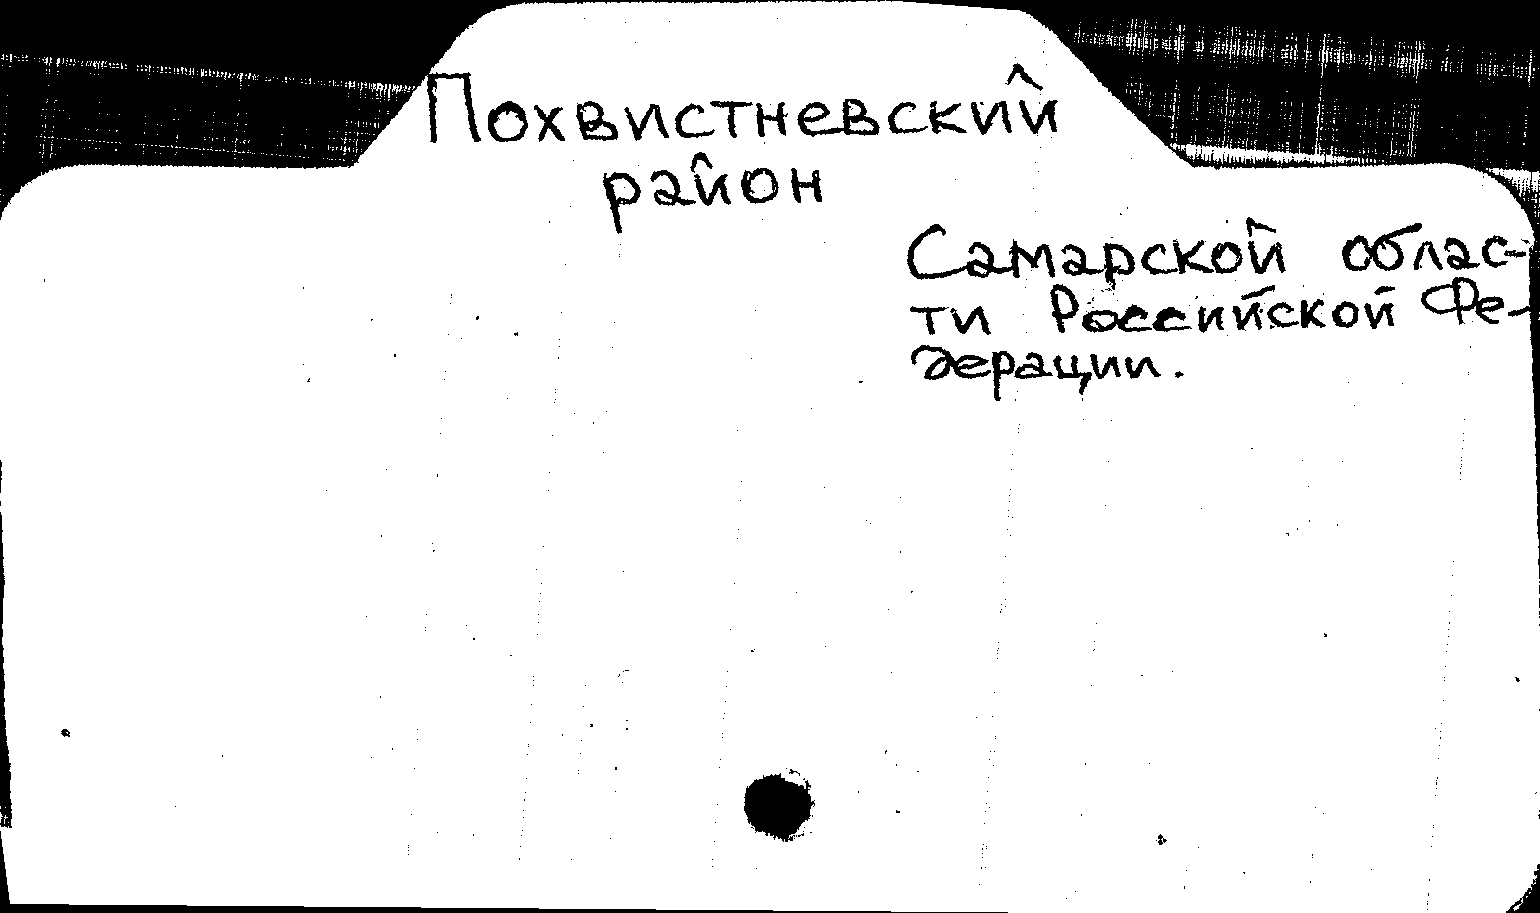 Похвистневский
район
Самарской облас-
ти Российской Фе-
дерации.